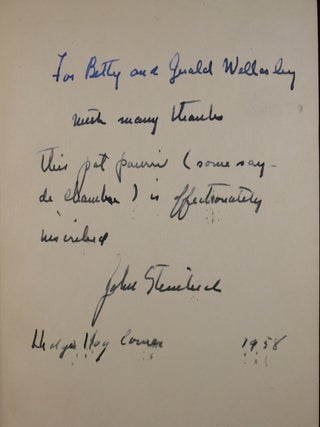 For Betty and Gerald Wellesley
with many thanks
this pot pourri (some say -
de chambre) is affectionately
inscribed
John Steinbeck
1958